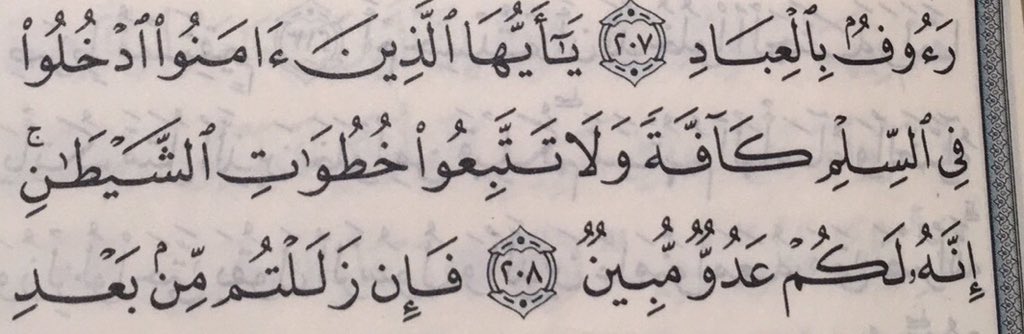 رَءُوفُۢ بِٱلْعِبَادِ ٢٠٧ يَٰٓأَيُّهَا ٱلَّذِينَ ءَامَنُوا۟ ٱدْخُلُوا۟
فِى ٱلسِّلْمِ كَآفَّةً وَلَا تَتَّبِعُوا۟ خُطُوَٰتِ ٱلشَّيْطَٰنِ ۚ
إِنَّهُۥ لَكُمْ عَدُوٌّ مُّبِينٌ ٢٠٨ فَإِن زَلَلْتُم مِّنۢ بَعْدِ